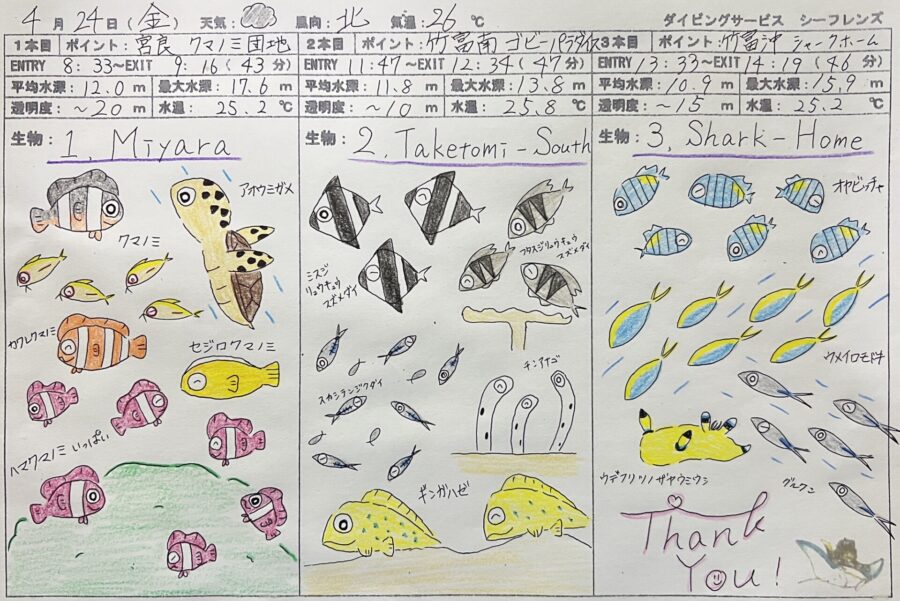 4月24日(金) 天気: 風向:北 気温:26℃ ダイビングサービス シーフレンズ
1本目 ポイント:宮良 クマノミ団地
ENTRY 8:33~EXIT 9:16(43分)
平均水深:12.0m 最大水深:17.6m
透明度:~20m 水温:25.2℃
生物:1. Miyara
クマノミ
アオウミガメ
カクレクマノミ
セジロクマノミ
ハマクマノミ いっぱい
2本目 ポイント:竹富南 ゴビーパラダイス
ENTRY 11:47~EXIT 12:34(47分)
平均水深:11.8m 最大水深:13.8m
透明度:~10m 水温:25.8℃
生物:2. Taketomi-South
ミスジ
リュウキュウ
スズメダイ
フタスジリュウキュウ
スズメダイ
スカシテンジクダイ
チンアナゴ
ギンガハゼ
3本目 ポイント:竹富沖 シャークホーム
ENTRY 13:33~EXIT 14:19(46分)
平均水深:10.9m 最大水深:15.9m
透明度:~15m 水温:25.2℃
生物:3. Shark-Home
オヤビッチャ
ウメイロモドキ
ウデフリツノザヤウミウシ
グルクン
Thank
You!